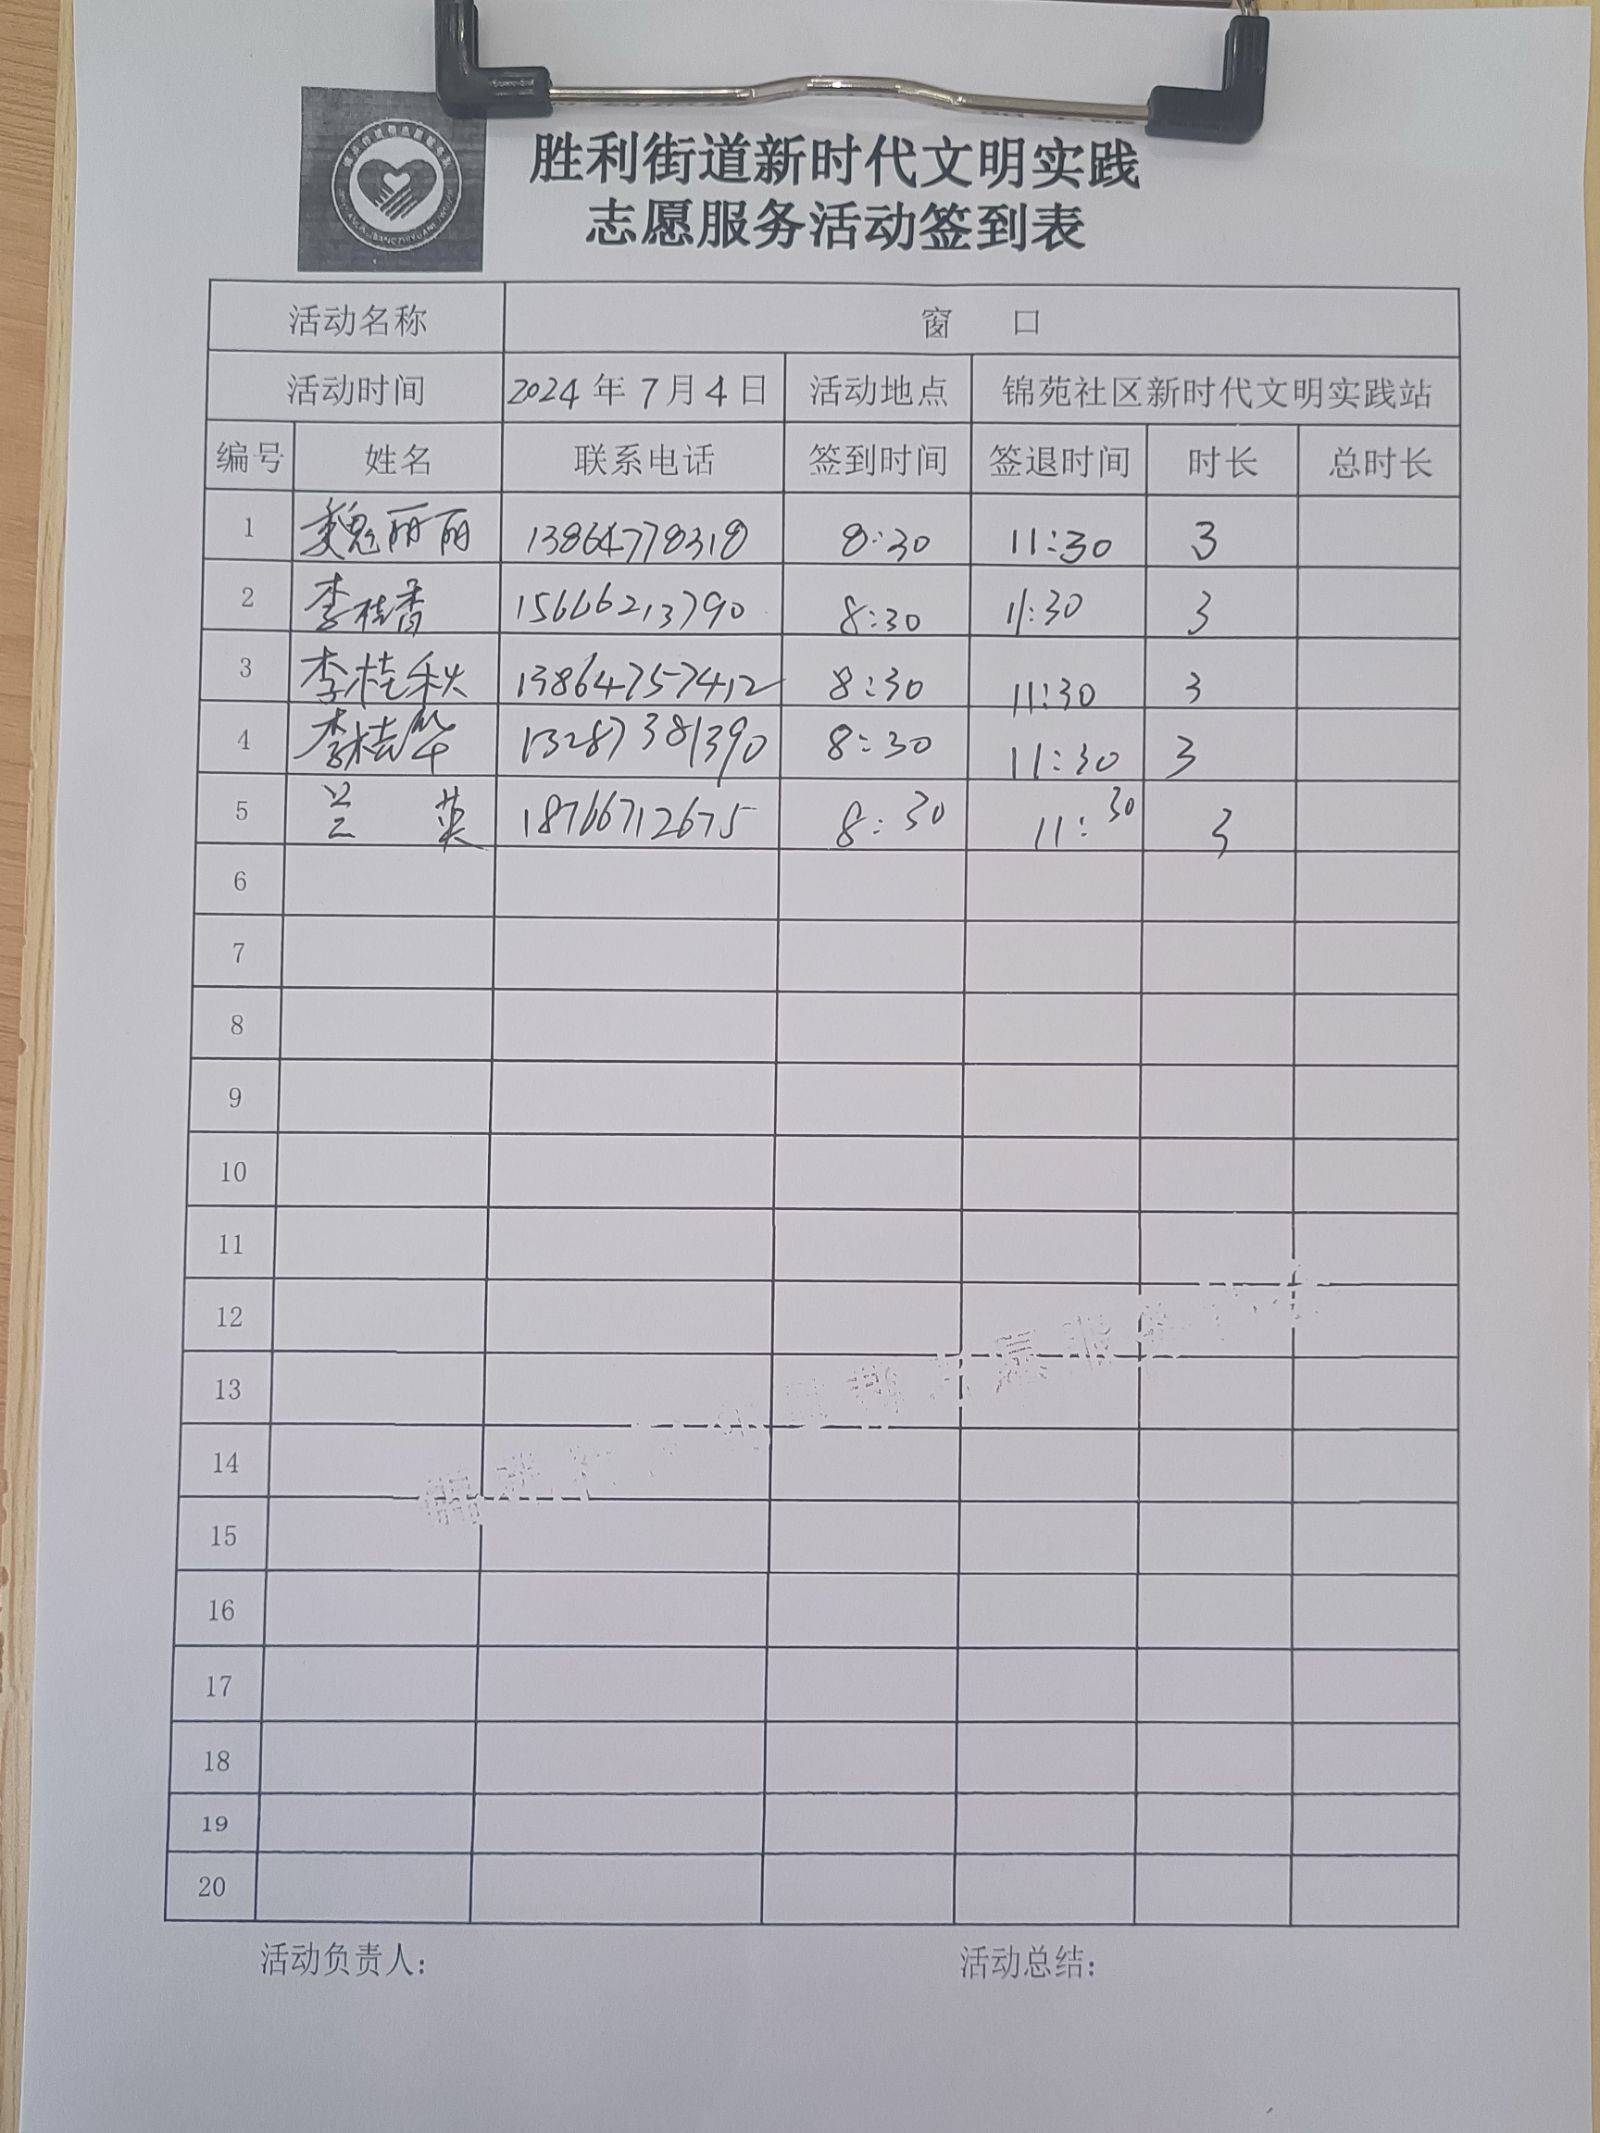 胜利街道新时代文明实践
志愿服务活动签到表
活动名称 窗 口
活动时间 2024年7月4日 活动地点 锦苑社区新时代文明实践站
编号 姓名 联系电话 签到时间 签退时间 时长 总时长
1 魏丽丽 13864778318 8:30 11:30 3
2 李桂香 15666213790 8:30 11:30 3
3 李桂秋 13864757412 8:30 11:30 3
4 李桂华 13287381390 8:30 11:30 3
5 兰 英 18766712675 8:30 11:30 3
6
7
8
9
10
11
12
13
14
15
16
17
18
19
20
活动负责人: 活动总结: